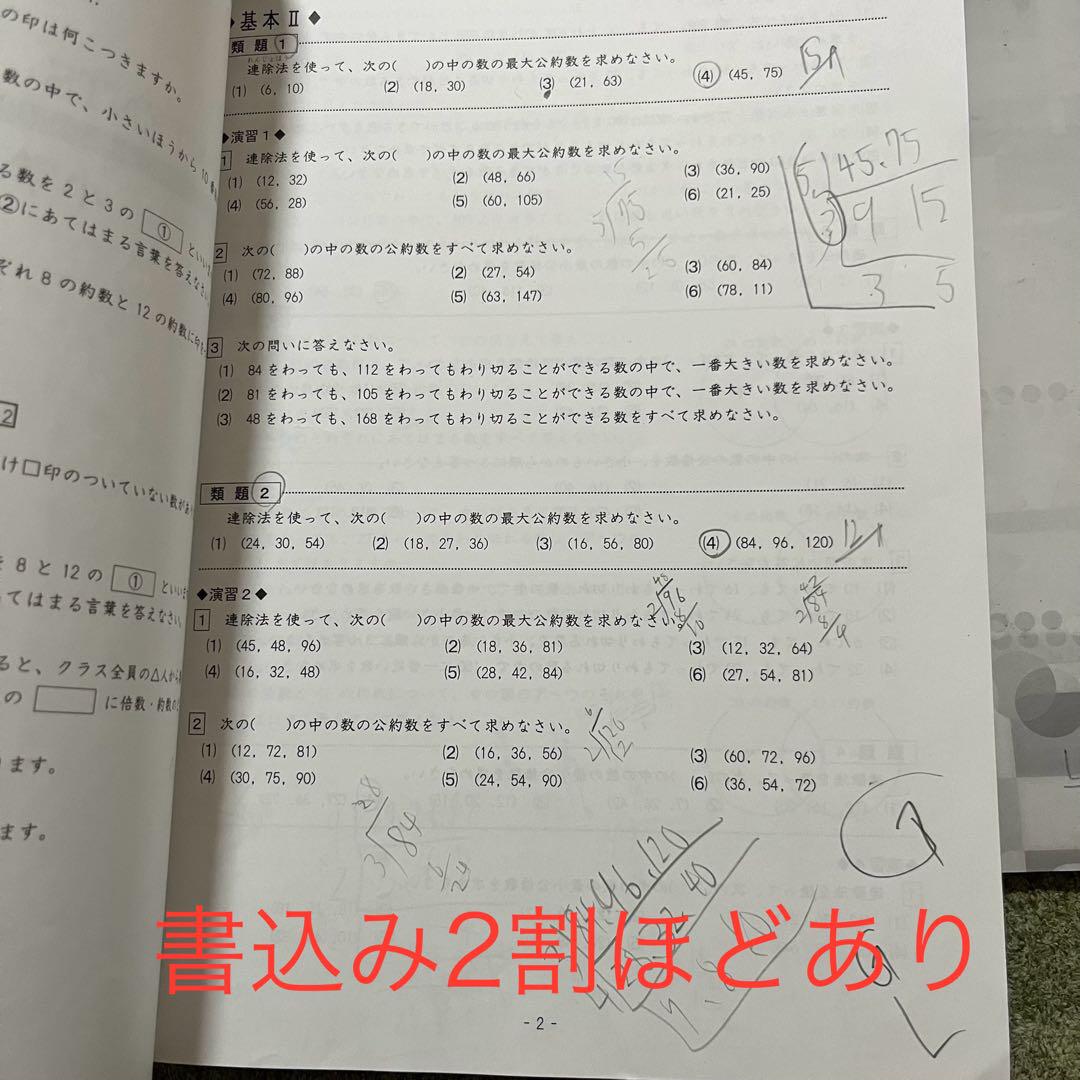 の印は何こつきますか。
数の中で、小さいほうから10番
る数を2と3の ① といい
②にあてはまる言葉を答えなさい
ぞれ8の約数と12の約数に印を
2
け□印のついていない数があ
を8と12の ① といいま
てはまる言葉を答えなさい
ると、クラス全員の△人から
の □ に倍数・約数の
ります。
ます。
◆基本Ⅱ◆
類題 1
連除法を使って、次の( )の中の数の最大公約数を求めなさい。
(1) (6, 10) (2) (18, 30) (3) (21, 63) (4) (45, 75) 15
◆演習1◆
1 連除法を使って、次の( )の中の数の最大公約数を求めなさい。
(1) (12, 32) (2) (48, 66) (3) (36, 90)
(4) (56, 28) (5) (60, 105) (6) (21, 25)
5 45.75
3 9 15
3 5
2 次の( )の中の数の公約数をすべて求めなさい。
(1) (72, 88) (2) (27, 54) (3) (60, 84)
(4) (80, 96) (5) (63, 147) (6) (78, 11)
3 次の問いに答えなさい。
(1) 84をわっても、112をわってもわり切ることができる数の中で、一番大きい数を求めなさい。
(2) 81をわっても、105をわってもわり切ることができる数の中で、一番大きい数を求めなさい。
(3) 48をわっても、168をわってもわり切ることができる数をすべて求めなさい。
類題 2
連除法を使って、次の( )の中の数の最大公約数を求めなさい。
(1) (24, 30, 54) (2) (18, 27, 36) (3) (16, 56, 80) (4) (84, 96, 120) 12
◆演習2◆
1 連除法を使って、次の( )の中の数の最大公約数を求めなさい。
(1) (45, 48, 96) (2) (18, 36, 81) (3) (12, 32, 64)
(4) (16, 32, 48) (5) (28, 42, 84) (6) (27, 54, 81)
2 次の( )の中の数の公約数をすべて求めなさい。
(1) (12, 72, 81) (2) (16, 36, 56) (3) (60, 72, 96)
(4) (30, 75, 90) (5) (24, 54, 90) (6) (36, 54, 72)
28
3 84
6
24
書込み2割ほどあり
- 2 -